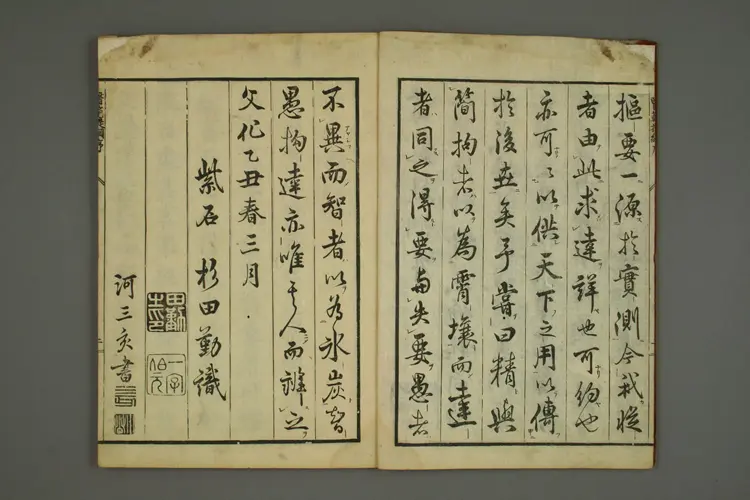 摳要一源於實測今我從
者由此求達詳也可約也
亦可以供天下之用以傳
於後矣予嘗曰精與
簡拘者以為霄壤而達
者同之得要與失要愚者
不異而智者以為氷炭智
愚拘達亦唯其人而雖云
文化乙丑春三月
紫石 杉田勤識
河三亥書